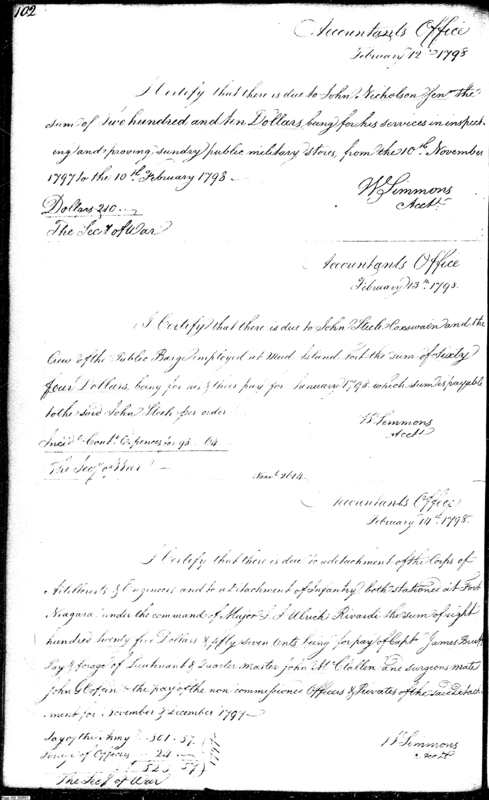 102
Accountants Office
February 12th 1798
I Certify that there is due to John Nicholson Jenr the
sum of Two hundred and ten Dollars, being for his services in inspect-
ing and proving sundry public military stores, from the 10th November
1797 to the 10th February 1798
W Simmons
Acctt
Dollars 210
The Secy of War
Accountants Office
February 13th 1798.
I Certify that there is due to John Steele Coxswain and the
Crew of the Public Barge employed at Mud Island Fort the sum of sixty
four Dollars, being for his & their pay for January 1798 which sum is payable
to the said John Steele per order
W Simmons
Acctt
Incidl & Contt Expences for 98 64
The Secy of War
2614
Accountants Office
February 14th 1798.
I Certify that there is due to a detachment of the Corps of
Artillerists & Engineers and to a detachment of Infantry both stationed at Fort
Niagara under the command of Major J. J. Ulrich Rivardi the sum of eight
hundred twenty five Dollars & fifty seven cents being for pay of Capt James Bruff
Pay & forage of Lieutenant & Quarter Master John McClallen and surgeons mate
John G Cofin & the pay of the non commissioned Officers & Privates of the said Detach
ment for November & December 1797
Pay of the Army 801.57
Forage of Officers 24
1797
825 57
W Simmons
Acctt
The Secy of War